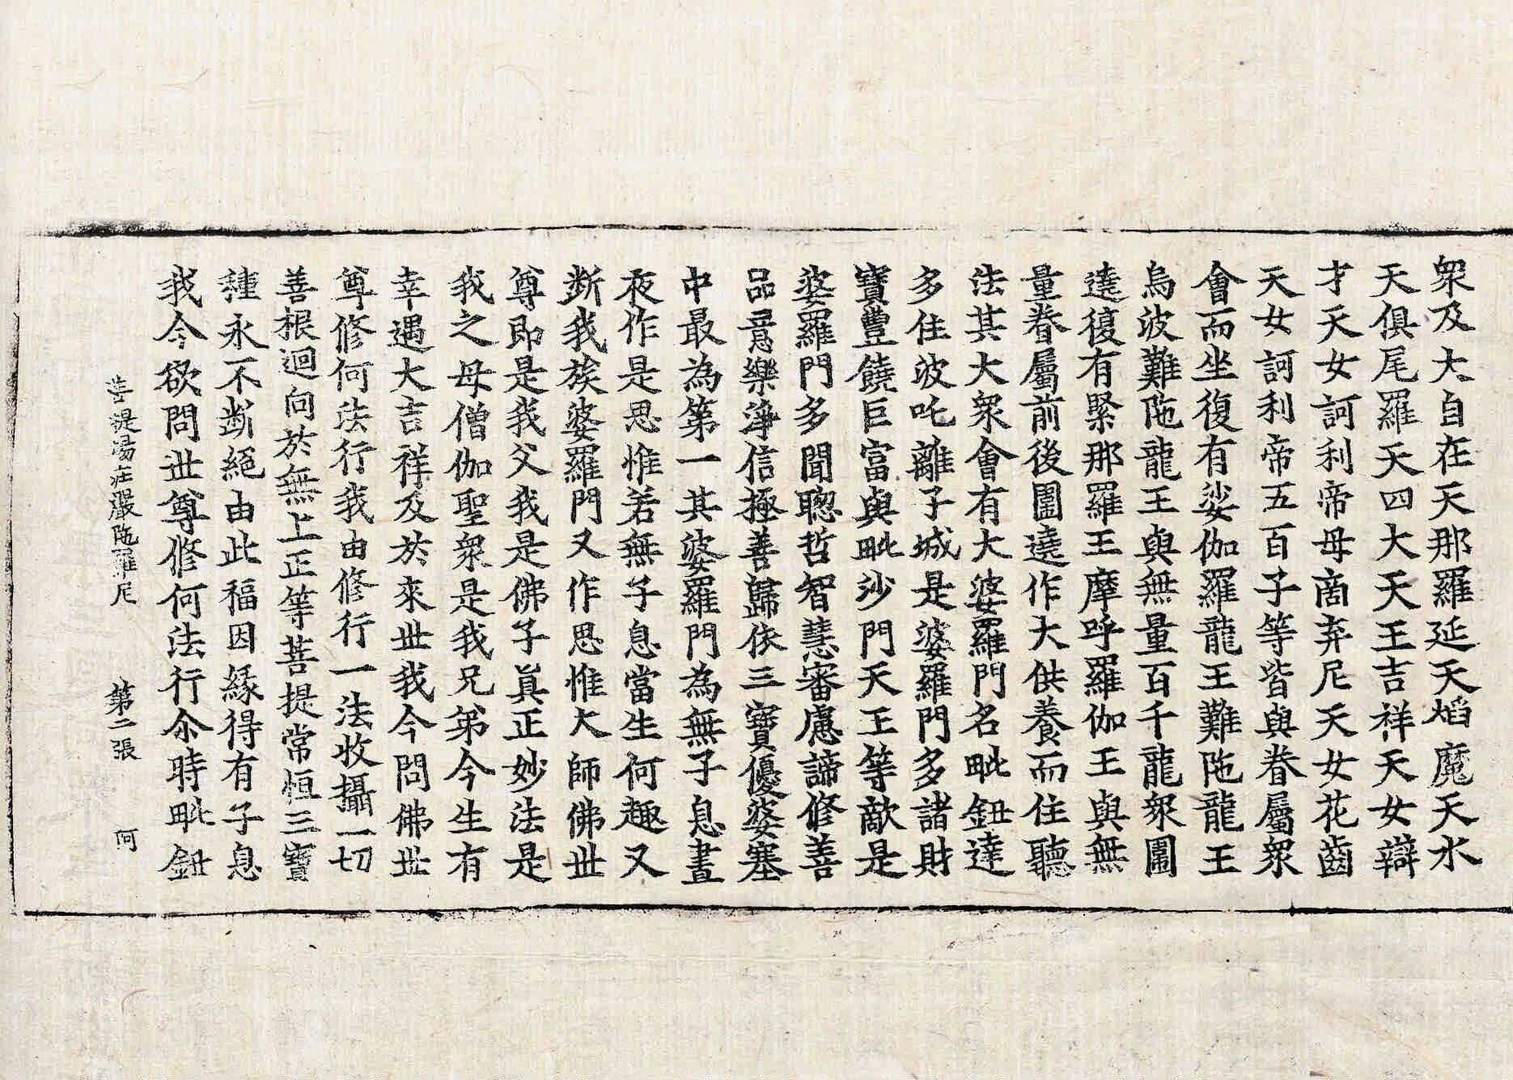 衆及大自在天那羅延天焰魔天水
天俱尾羅天四大天王吉祥天女辯
才天女訶利帝母啇弃尼天女花齒
天女訶利帝五百子等皆與眷屬衆
會而坐復有娑伽羅龍王難陁龍王
烏波難陁龍王與無量百千龍衆圍
遶復有緊那羅王摩呼羅伽王與無
量眷屬前後圍遶作大供養而住聽
法其大衆會有大婆羅門名毗鈕達
多住波吒離子城是婆羅門多諸財
寶豐饒巨富與毗沙門天王等敵是
婆羅門多聞聰哲智慧審慮諦修善
品意樂淨信極善歸依三寶優婆塞
中最為第一其婆羅門為無子息晝
夜作是思惟若無子息當生何趣又
斷我族婆羅門又作思惟大師佛世
尊即是我父我是佛子真正妙法是
我之母僧伽聖衆是我兄弟今生有
幸遇大吉祥及於來世我今問佛世
尊修何法行我由修行一法收攝一切
善根迴向於無上正等菩提常恒三寶
種永不斷絕由此福因緣得有子息
我今欲問世尊修何法行尒時毗鈕
菩提場莊嚴陁羅尼 第二張 阿